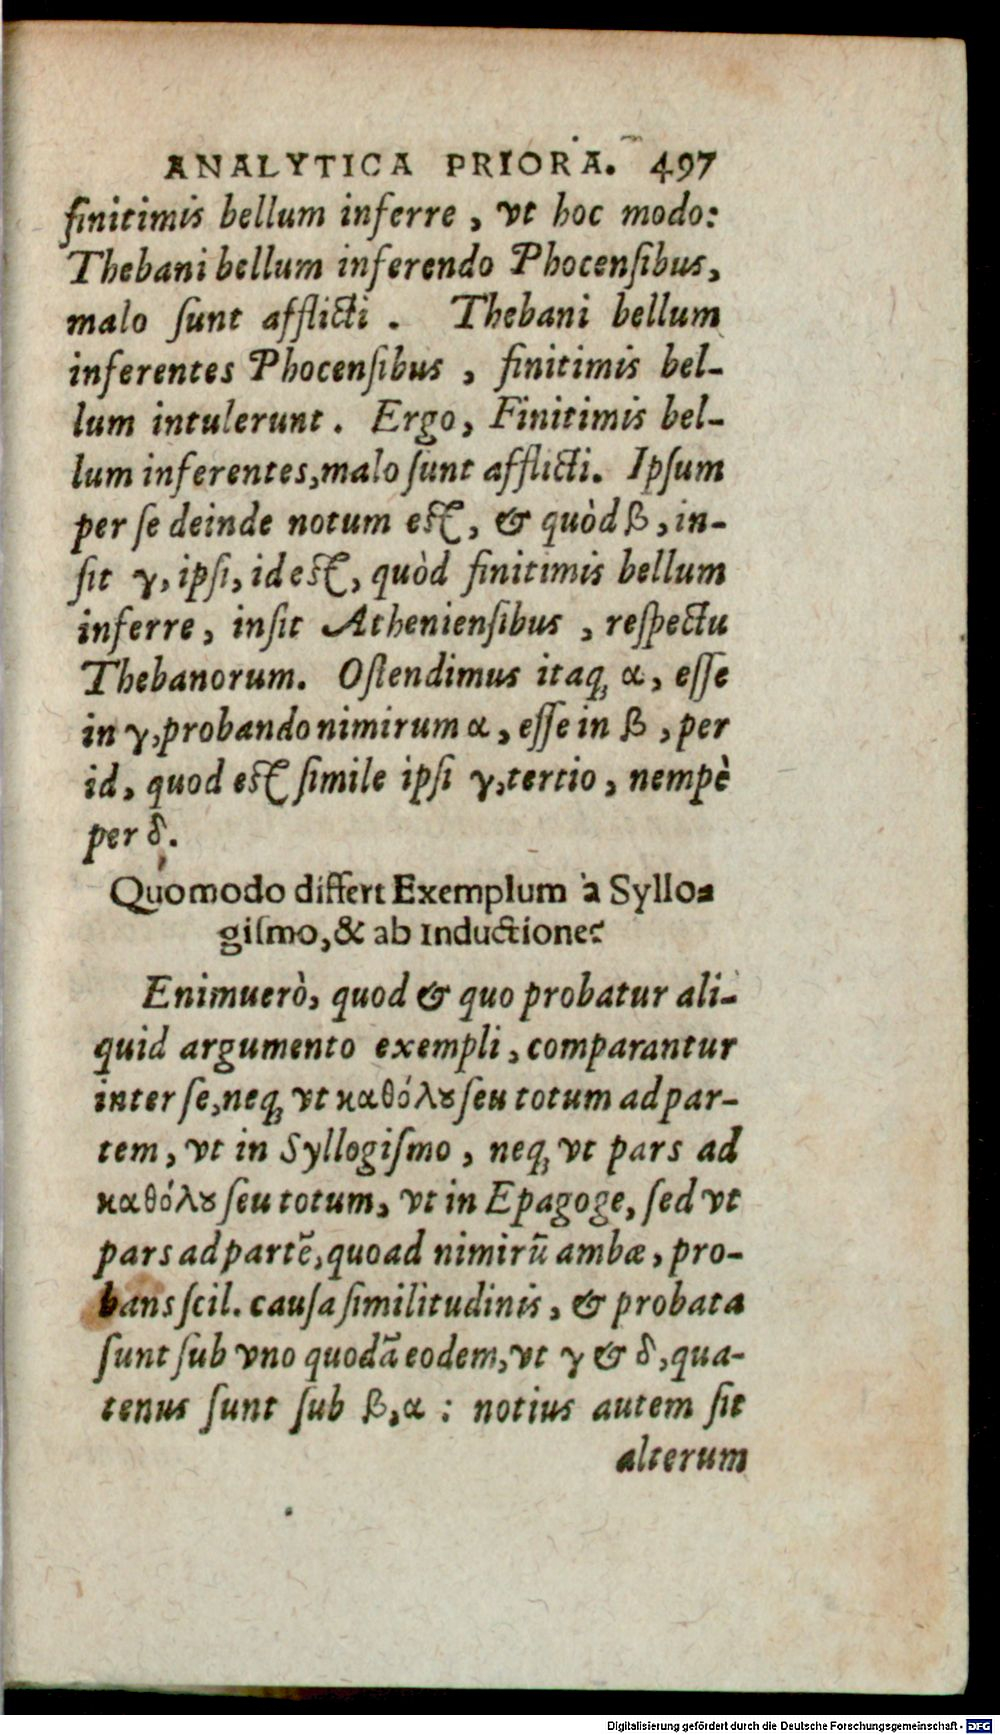 ANALYTICA PRIORA. 497
finitimis bellum inferre, vt hoc modo:
Thebani bellum inferendo Phocensibus,
malo sunt afflicti. Thebani bellum
inferentes Phocensibus, finitimis bel-
lum intulerunt. Ergo, Finitimis bel-
lum inferentes, malo sunt afflicti. Ipsum
per se deinde notum est, & quòd β, in-
sit γ, ipsi, id est, quòd finitimis bellum
inferre, insit Atheniensibus, respectu
Thebanorum. Ostendimus itaq; α, esse
in γ, probando nimirum α, esse in β, per
id, quod est simile ipsi γ, tertio, nempè
per δ.
Quomodo differt Exemplum à Syllo-
gismo, & ab Inductione?
Enimuerò, quod & quo probatur ali-
quid argumento exempli, comparantur
inter se, neq; vt καθόλȣ seu totum ad par-
tem, vt in Syllogismo, neq; vt pars ad
καθόλȣ seu totum, vt in Epagoge, sed vt
pars ad partē, quoad nimirū ambæ, pro-
bans scil. causa similitudinis, & probata
sunt sub vno quodā eodem, vt γ & δ, qua-
tenus sunt sub β, α : notius autem sit
alterum
Digitalisierung gefördert durch die Deutsche Forschungsgemeinschaft - DFG